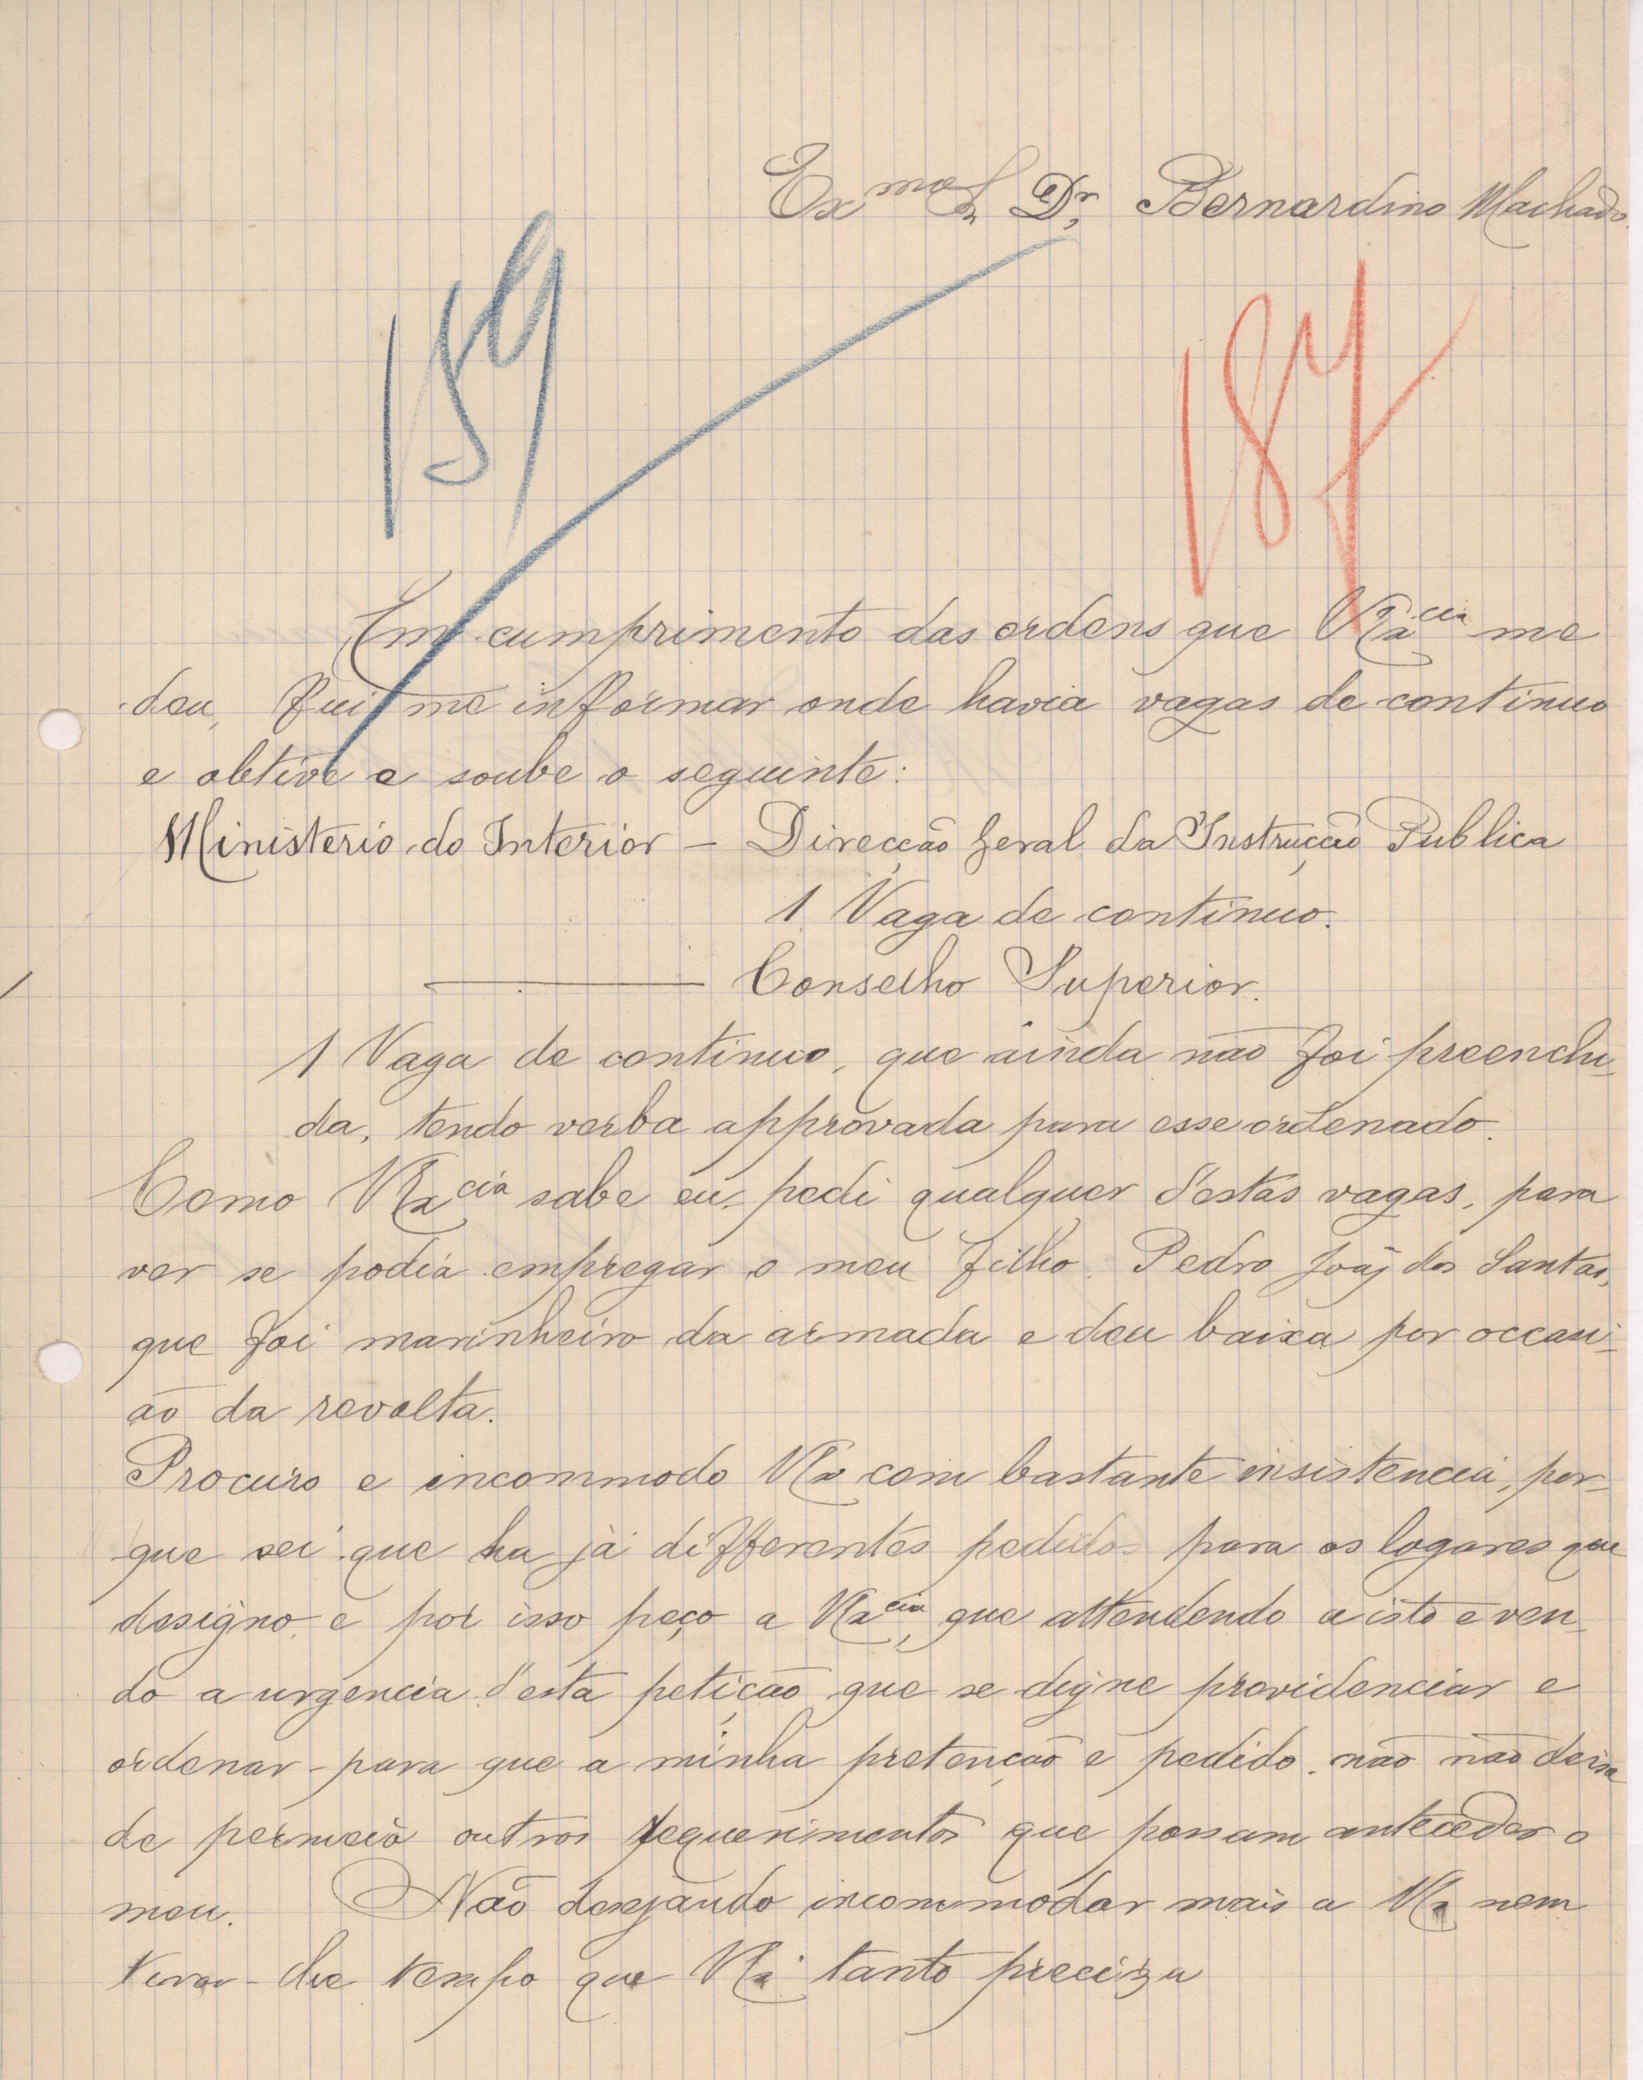 Ex.mo Sr. Dr. Bernardino Machado.
159
187
Em cumprimento das ordens que V.Exa.cia me
deu, fui me informar onde havia vagas de continuo
e obtive e soube o seguinte:
Ministerio do Interior – Direcção Geral da Instrucção Publica
1 Vaga de continuo.
——— Conselho Superior.
1 Vaga de continuo, que ainda não foi preenchi-
da, tendo verba approvada para esse ordenado.
Como V.Exa.cia sabe eu pedi qualquer d'estas vagas, para
ver se podia empregar o meu filho Pedro João dos Santos,
que foi marinheiro da armada e deu baixa por occasi-
ão da revolta.
Procuro e incommodo V.Exa. com bastante insistencia, por-
que sei que ha já differentes pedidos para os logares que
designo e por isso peço a V.Exa.cia, que attendendo a isto e ven-
do a urgencia d'esta petição que se digne providenciar e
ordenar para que a minha pretenção e pedido não não deixe
de permeio outros requerimentos que possam anteceder o
meu. Não desejando incommodar mais a V.Exa. nem
tirar-lhe tempo que V.Exa. tanto preciza